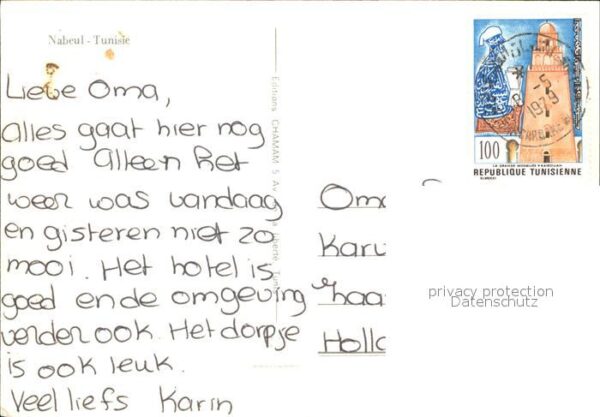 Nabeul - Tunisie
Lieve Oma,
Alles gaat hier nog
goed Alleen het
weer was vandaag
en gisteren niet zo
mooi. Het hotel is
goed en de omgeving
verder ook. Het dorpje
is ook leuk.
Veel liefs Karin
Editions CHAMAM 5 Av
Tunis
1979
100
LA GRANDE MOSQUEE KAIROUAN
REPUBLIQUE TUNISIENNE
Oma
Holla
privacy protection
Datenschutz